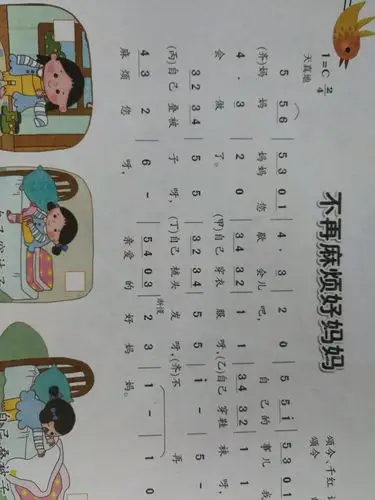 不再麻烦好妈妈
1=C 2/4
天真地
颂今、千红
颂今
5 5 6 | 5 3 0 1 | 4· 3 | 2 0 | 5 5 i | 5 3 0 1
(齐)妈 妈 妈妈 您 歇 会儿 吧, 自己的 事儿 我
4· 3 | 2 0 | 3 4 3 2 | 1 1 | 3 4 3 2 | 1 1
会 做 了。 (甲)自己穿衣 服 呀,(乙)自己穿鞋 袜 呀,
3 2 3 4 | 5 5 | 3 2 3 4 | 5 5 | i - | 5 -
(丙)自己叠被 子 呀,(丁)自己梳头 发 呀,(齐)不 再
渐慢
4 3 2 | 6 - | 5 4 0 3 | 2 3 | 1 - | 1 0
麻烦 您 呀, 亲爱的 好 妈 妈。